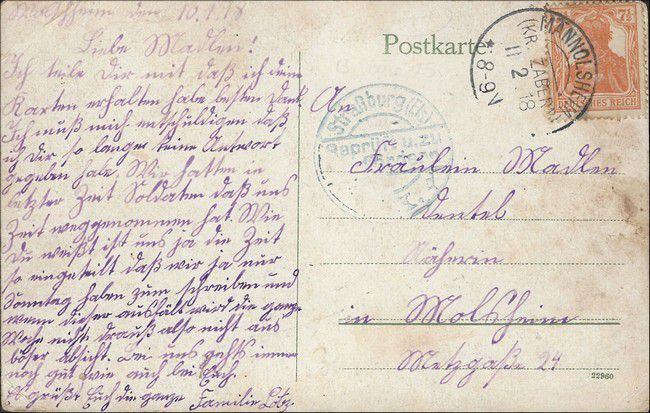 den 10.2.18
Liebe Madlen!
Ich teile Dir mit daß ich deine
Karten erhalten habe besten Dank
Ich muß mich entschuldigen daß
ich dir so lange keine Antwort
gegeben habe. Wir hatten in
letzter Zeit Soldaten daß uns
Zeit weggenommen hat. Wie
Du weißt ist uns ja die Zeit
so eingeteilt daß wir ja nur
Sonntag haben zum schreiben und
wenn dieser ausfällt wird die ganze
Woche nichts drauß also nicht aus
böser Absicht. Bei uns gehts immer
noch gut wie auch bei Euch.
Es grüßt Euch die ganze Familie Lotz
Postkarte
MANNOLSHEIM
(KR. ZABERN)
11 2.18
* 8-9 V
7½
DEUTSCHES REICH
Straßburg (Els)
Geprüft u. zu
An
Fräulein Madlen
Dentel
Näherin
in Molsheim
Metzgaße 24
22960